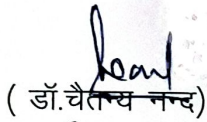 ( डॉ.चैतन्य नन्द)